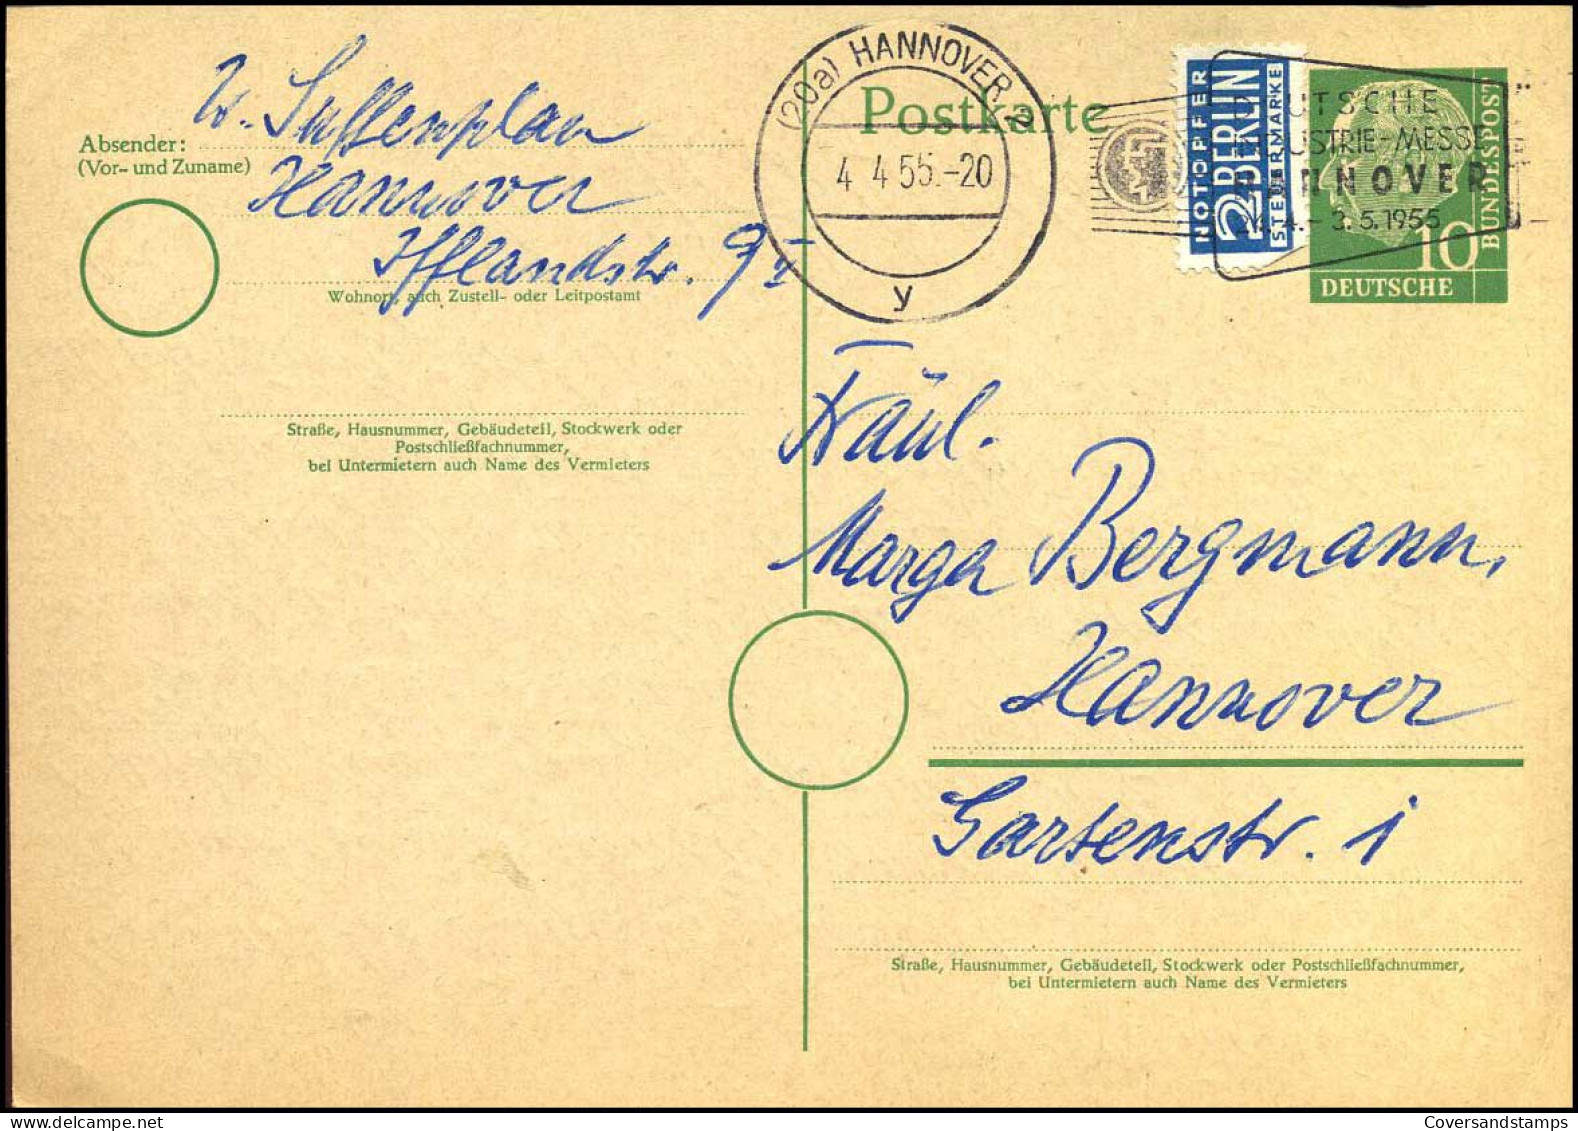 Absender:
(Vor- und Zuname)
Hannover
Ifflandstr. 9 I
Wohnort, auch Zustell- oder Leitpostamt
Straße, Hausnummer, Gebäudeteil, Stockwerk oder
Postschließfachnummer,
bei Untermietern auch Name des Vermieters
Postkarte
(20a) HANNOVER 2
4 4 55.-20
y
NOTOPFER
2 BERLIN
STEUERMARKE
DEUTSCHE
INDUSTRIE-MESSE
HANNOVER
24.4.-3.5.1955
10
DEUTSCHE
BUNDESPOST
Fräul.
Marga Bergmann,
Hannover
Gartenstr. 1
Straße, Hausnummer, Gebäudeteil, Stockwerk oder Postschließfachnummer,
bei Untermietern auch Name des Vermieters
Coversandstamps